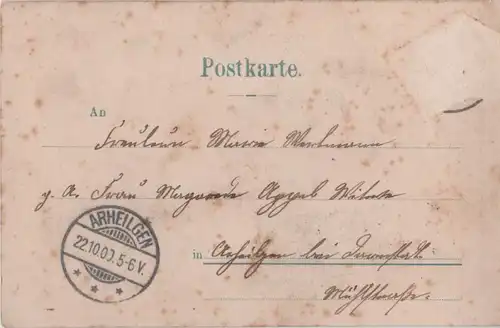 Postkarte.
An
Fräulein Marie Wertmann
z. A. Frau Margarete Appel Witwe
in Arheilgen bei Darmstadt.
Mühlstraße.
ARHEILGEN
22.10.00. 5-6 V.